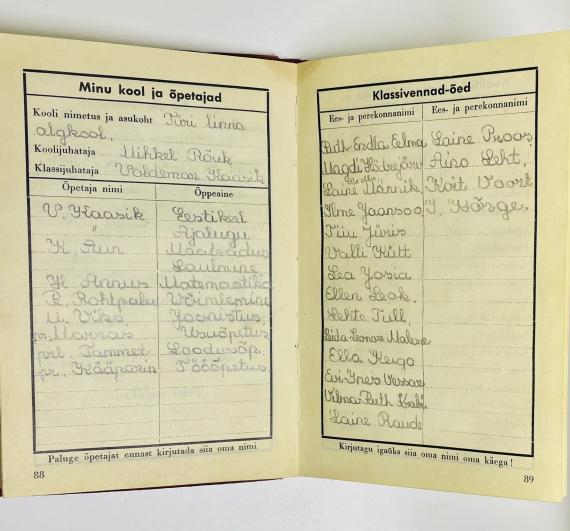 Minu kool ja õpetajad
Kooli nimetus ja asukoht Türi linna
algkool,
Koolijuhataja Mihkel Rõuk
Klassijuhataja Voldemar Haasik
Õpetaja nimi Õppeaine
V. Haasik Eestikeel
" Ajalugu
K. Aun Maateadus
Laulmine
H. Annus Matemaatika
R. Rohtpalu Võimlemine
M. Viks Joonistus
pr. Marras Usuõpetus
prl. Tammet Loodusõp.
pr. Kääparin Tööõpetus
Paluge õpetajat ennast kirjutada siia oma nimi.
88
Klassivennad-õed
Ees- ja perekonnanimi Ees- ja perekonnanimi
Ruth Endla Eelma Laine Proos
Magdi Aino Leht,
Laine Männik, Koit Voort
Ilme Jaansoo,
Tiiu Jüris
Valli Kütt
Lea Josia
Ellen Leok,
Lehte Tull,
Leida Leonora
Ella Kergo
Evi Ines
Vilma Ruth
Laine Raud
Kirjutagu igaüks siia oma nimi oma käega!
89